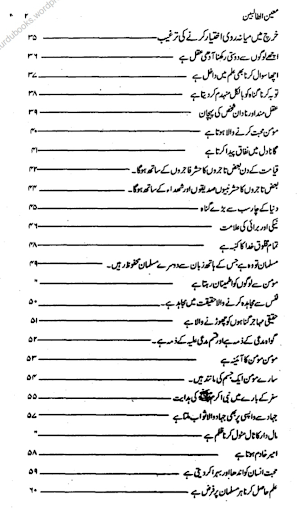 معین الطالبین ۴
urdubooks.wordpr
خرچ میں میانہ روی اختیار کرنے کی ترغیب ۳۵
اچھے لوگوں سے دوستی رکھنا آدھی عقل ہے ۳۶
اچھا سوال کرنا بھی علم میں داخل ہے ۳۷
توبہ کرنا گناہ کو بالکل منہدم کر دیتا ہے ۳۸
عقل مند اور نادان شخص کی پہچان ۳۹
مؤمن محبت کرنے والا ہوتا ہے ۴۰
گانا دل میں نفاق پیدا کرتا ہے ۴۱
قیامت کے دن بعض تاجروں کا حشر فاجروں کے ساتھ ہوگا۔ ۴۲
بعض تاجروں کا حشر نبیوں صدیقوں اور شہداء کے ساتھ ہوگا۔ ۴۴
دنیا کے چار سب سے بڑے گناہ ۴۵
نیکی اور برائی کی علامت ۴۶
تمام مخلوق خدا کا کنبہ ہے ۴۸
مسلمان تو وہ ہے جس کے ہاتھ زبان سے دوسرے مسلمان محفوظ رہیں۔ ۴۹
مؤمن سے لوگوں کو اطمینان رہتا ہے "
نفس سے مجاہدہ کرنے والا حقیقت میں مجاہد ہے۔ ۵۰
حقیقی مہاجر گناہوں کو چھوڑنے والا ہے ۵۱
گواہ مدعی کے ذمہ ہے اور قسم مدعی علیہ کے ذمہ ہے۔ ۵۲
مؤمن مؤمن کا آئینہ ہے ۵۳
سارے مؤمن ایک جسم کی مانند ہیں۔ ۵۴
سفر کے بارے میں نبی اکرم ﷺ کی ہدایت ۵۵
جہاد سے واپسی پر بھی جہاد والا ثواب ملتا ہے ۵۷
مال دار کا ٹال مٹول کرنا ظلم ہے "
امیر خادم ہوتا ہے ۵۸
محبت انسان کو اندھا اور بہرا کر دیتی ہے ۵۹
علم حاصل کرنا ہر مسلمان پر فرض ہے ۶۰